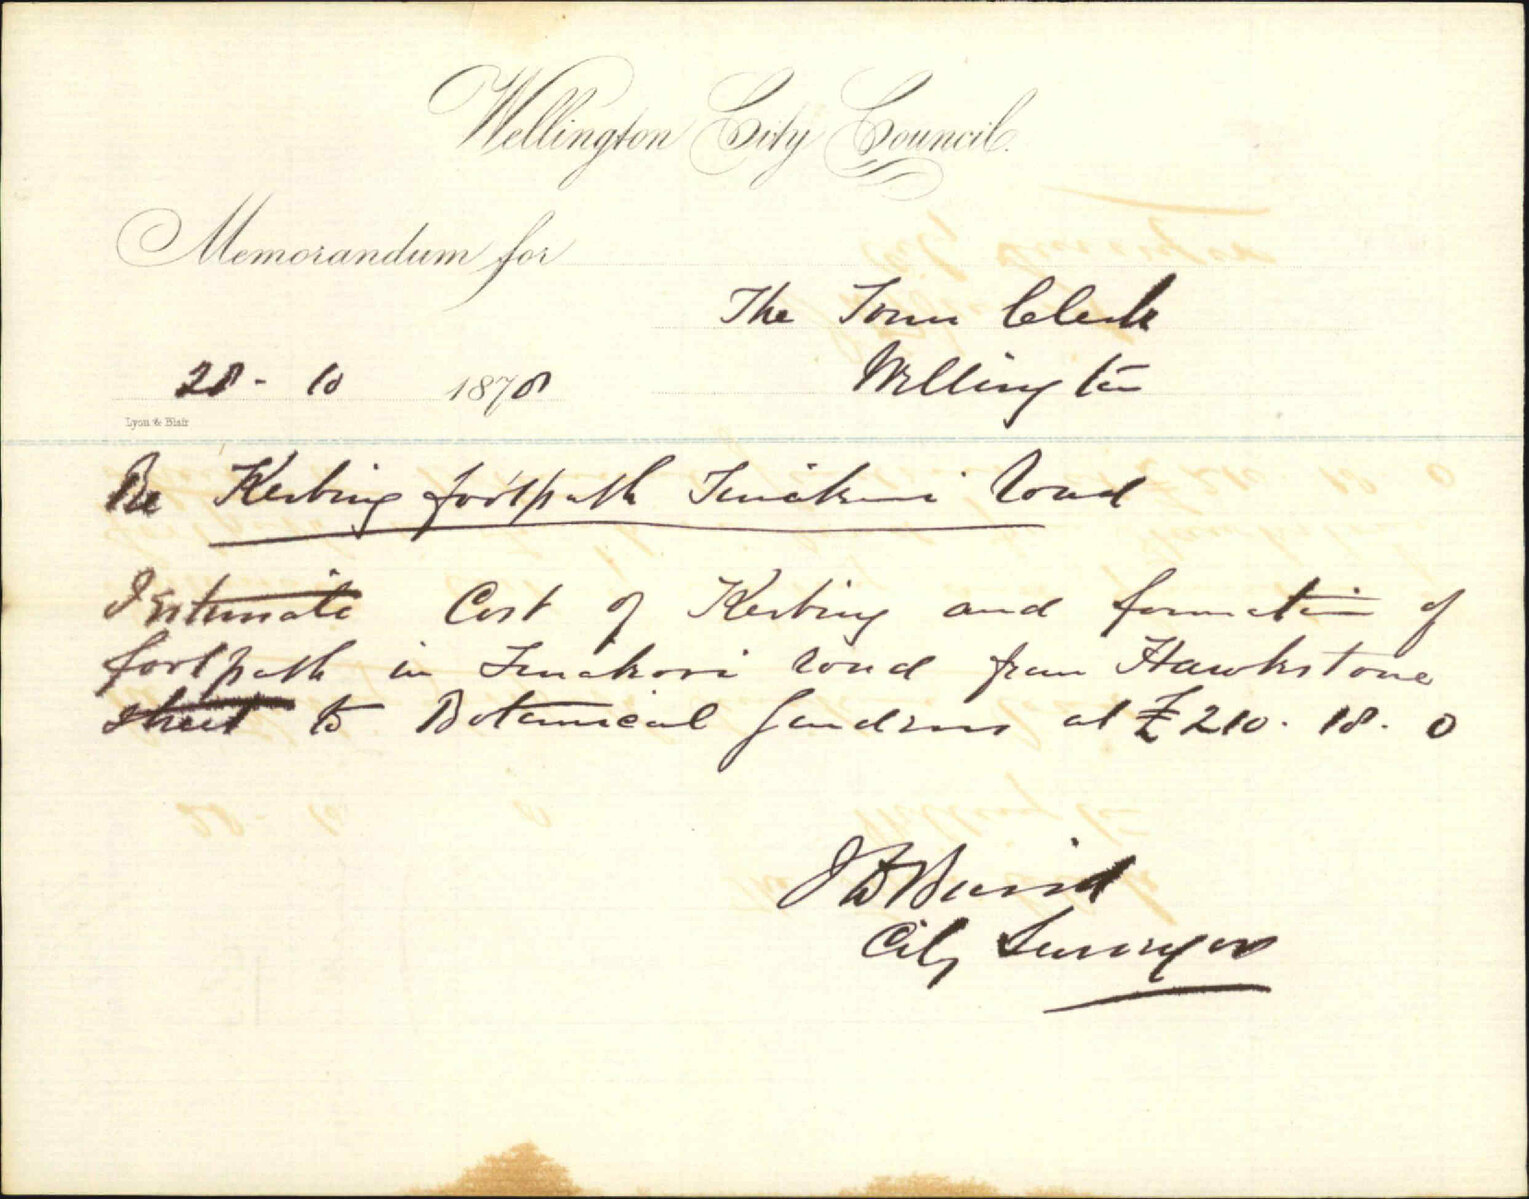 Wellington City Council.
Memorandum for
The Town Clerk
28 - 10 1878
Wellington
Lyon & Blair
Re Kerbing footpath Tinakori Road
I Estimate Cost of Kerbing and formation of
footpath in Tinakori Road from Hawkstone
street to Botanical Gardens at £210. 18. 0
J D Baird
City Surveyor